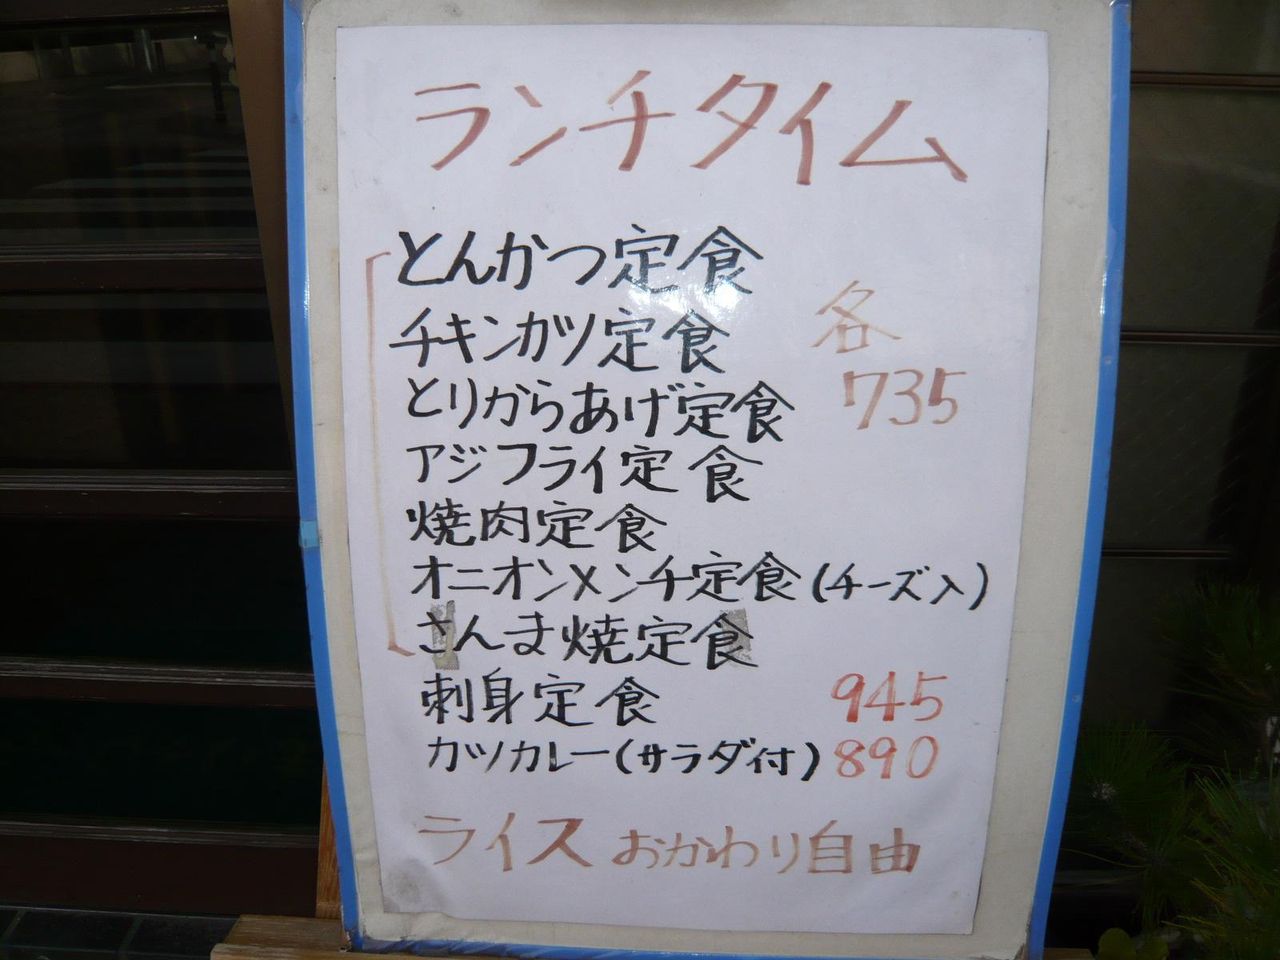 ランチタイム
とんかつ定食
チキンカツ定食
各
とりからあげ定食
735
アジフライ定食
焼肉定食
オニオンメンチ定食(チーズ入)
さんま焼定食
刺身定食 945
カツカレー(サラダ付) 890
ライスおかわり自由